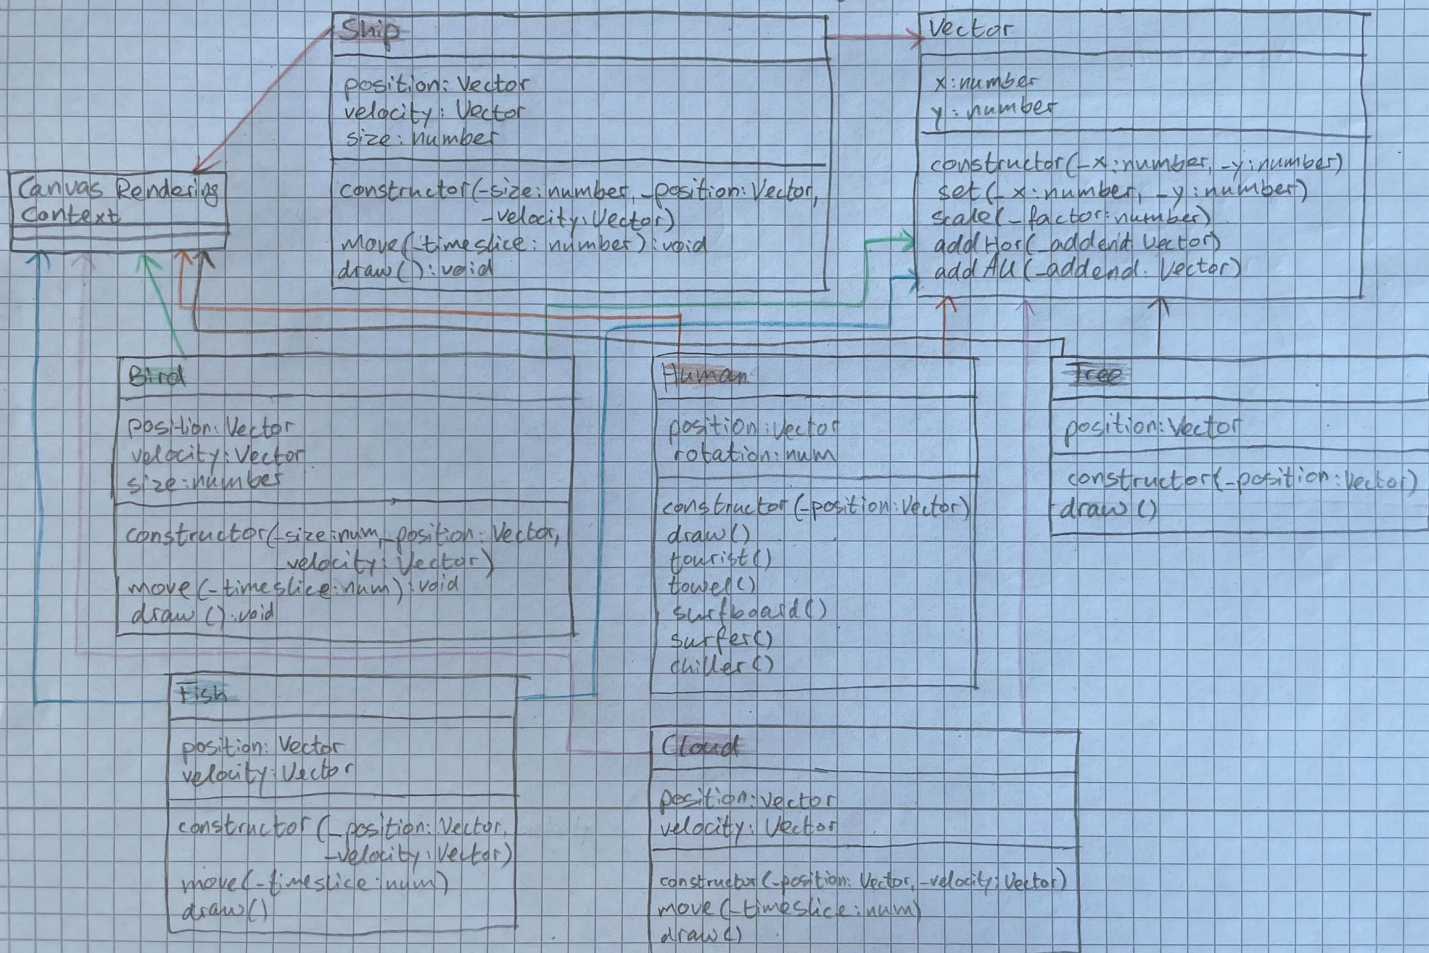 Ship
position: Vector
velocity: Vector
size: number
constructor(_size: number, _position: Vector,
_velocity: Vector)
move(_timeslice: number): void
draw(): void
Vector
x: number
y: number
constructor(_x: number, _y: number)
set(_x: number, _y: number)
scale(_factor: number)
add Hor(_addend: Vector)
add All(_addend: Vector)
Canvas Rendering
Context
Bird
position: Vector
velocity: Vector
size: number
constructor(_size: num, _position: Vector,
_velocity: Vector)
move(_timeslice: num): void
draw(): void
Human
position: Vector
rotation: num
constructor(_position: Vector)
draw()
tourist()
towel()
surfboard()
surfer()
chiller()
Tree
position: Vector
constructor(_position: Vector)
draw()
Fish
position: Vector
velocity: Vector
constructor(_position: Vector,
_velocity: Vector)
move(_timeslice: num)
draw()
Cloud
position: Vector
velocity: Vector
constructor(_position: Vector, _velocity: Vector)
move(_timeslice: num)
draw()